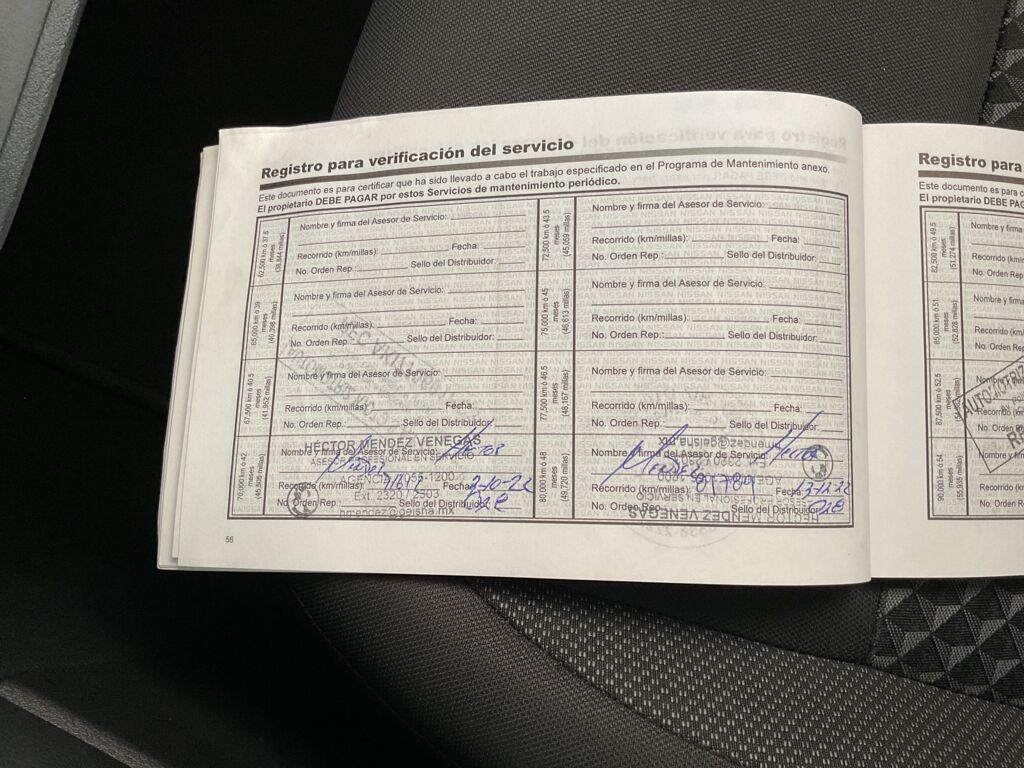 Registro para verificación del servicio
Este documento es para certificar que ha sido llevado a cabo el trabajo especificado en el Programa de Mantenimiento anexo.
El propietario DEBE PAGAR por estos Servicios de mantenimiento periódico.
62,500 km ó 37.5
meses
(38,844 millas)
Nombre y firma del Asesor de Servicio:
Recorrido (km/millas): Fecha:
No. Orden Rep.: Sello del Distribuidor:
65,000 km ó 39
meses
(40,398 millas)
Nombre y firma del Asesor de Servicio:
Recorrido (km/millas): Fecha:
No. Orden Rep.: Sello del Distribuidor:
67,500 km ó 40.5
meses
(41,952 millas)
Nombre y firma del Asesor de Servicio:
Recorrido (km/millas): Fecha:
No. Orden Rep.: Sello del Distribuidor:
70,000 km ó 42
meses
(43,505 millas)
HÉCTOR MENDEZ VENEGAS
Nombre y firma del Asesor de Servicio: Hector
ASESOR PROFESIONAL EN SERVICIO
Mendez
Recorrido (km/millas): Fecha:
Ext. 2320 / 2303
No. Orden Rep.: Sello del Distribuidor:
hmendez@geisha.mx
72,500 km ó 43.5
meses
(45,059 millas)
Nombre y firma del Asesor de Servicio:
Recorrido (km/millas): Fecha:
No. Orden Rep.: Sello del Distribuidor:
75,000 km ó 45
meses
(46,613 millas)
Nombre y firma del Asesor de Servicio:
Recorrido (km/millas): Fecha:
No. Orden Rep.: Sello del Distribuidor:
77,500 km ó 46.5
meses
(48,167 millas)
Nombre y firma del Asesor de Servicio:
Recorrido (km/millas): Fecha:
No. Orden Rep.: Sello del Distribuidor:
80,000 km ó 48
meses
(49,720 millas)
hmendez@geisha.mx
Nombre y firma del Asesor de Servicio: Hector
Mendez
Recorrido (km/millas): Fecha: 13-12-22
No. Orden Rep.: Sello del Distribuidor:
HÉCTOR MENDEZ VENEGAS
56
Registro para
Este documento es para c
El propietario DEBE PAG
82,500 km ó 49.5
meses
(51,274 millas)
Nombre y firma
Recorrido (km
No. Orden Rep
85,000 km ó 51
meses
(52,828 millas)
Nombre y firma
Recorrido (km/
No. Orden Rep
87,500 km ó 52.5
meses
Nombre y
Recorrido (km
No. Orden R
90,000 km ó 54
meses
(55,935 millas)
Nombre y firm
Recorrido (km
No. Orden R